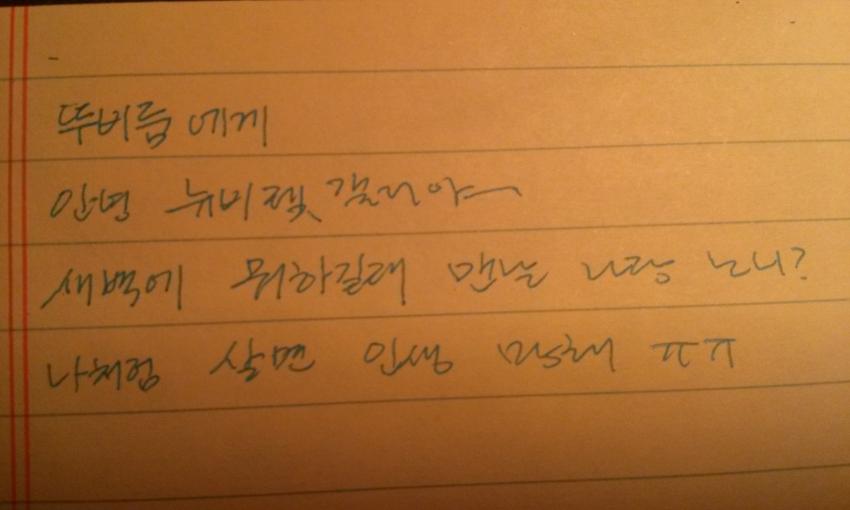 뚜비뚭에게
안녕 뉴비젯갤러야~
새벽에 뭐하길래 맨날 나랑 노니?
나처럼 살면 인생 망해 ㅠㅠ